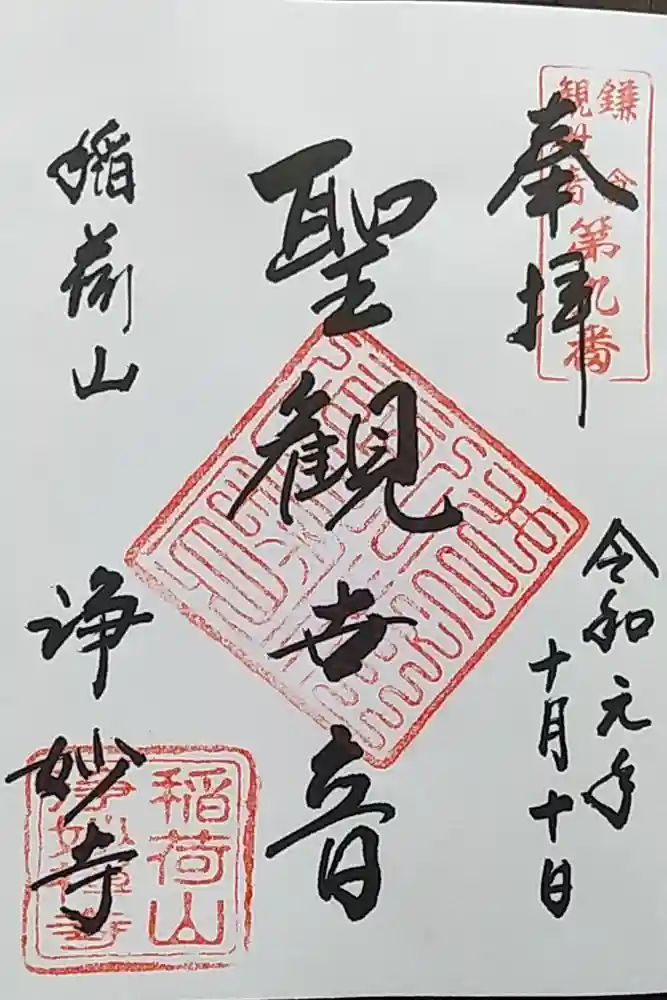 奉拝
鎌倉
観世音
第九番
令和元年
十月十日
聖観世音
稲荷山
浄妙寺
稲荷山
浄妙禅寺